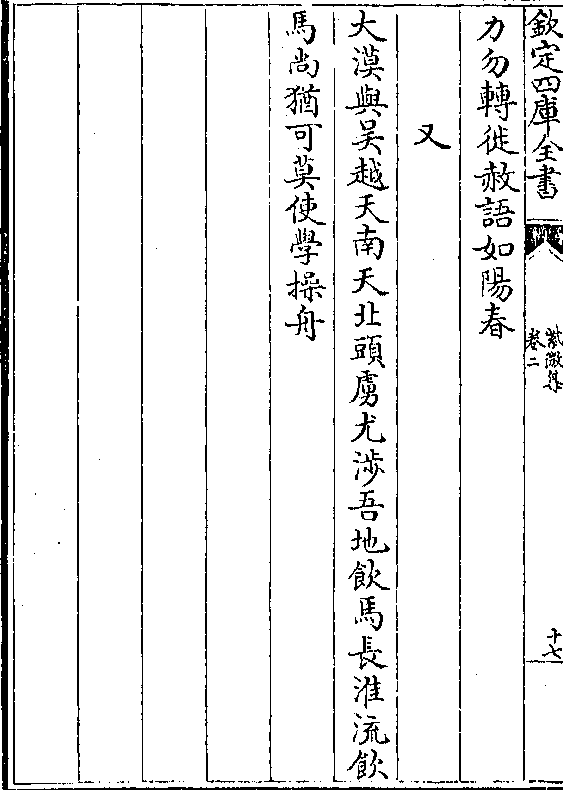 欽定四庫全書
紫微集
卷二
十七
力勿轉徙赦語如陽春
又
大漠與吴越天南天北頭虜尤涉吾地飲馬長淮流飲
馬尚猶可莫使學操舟